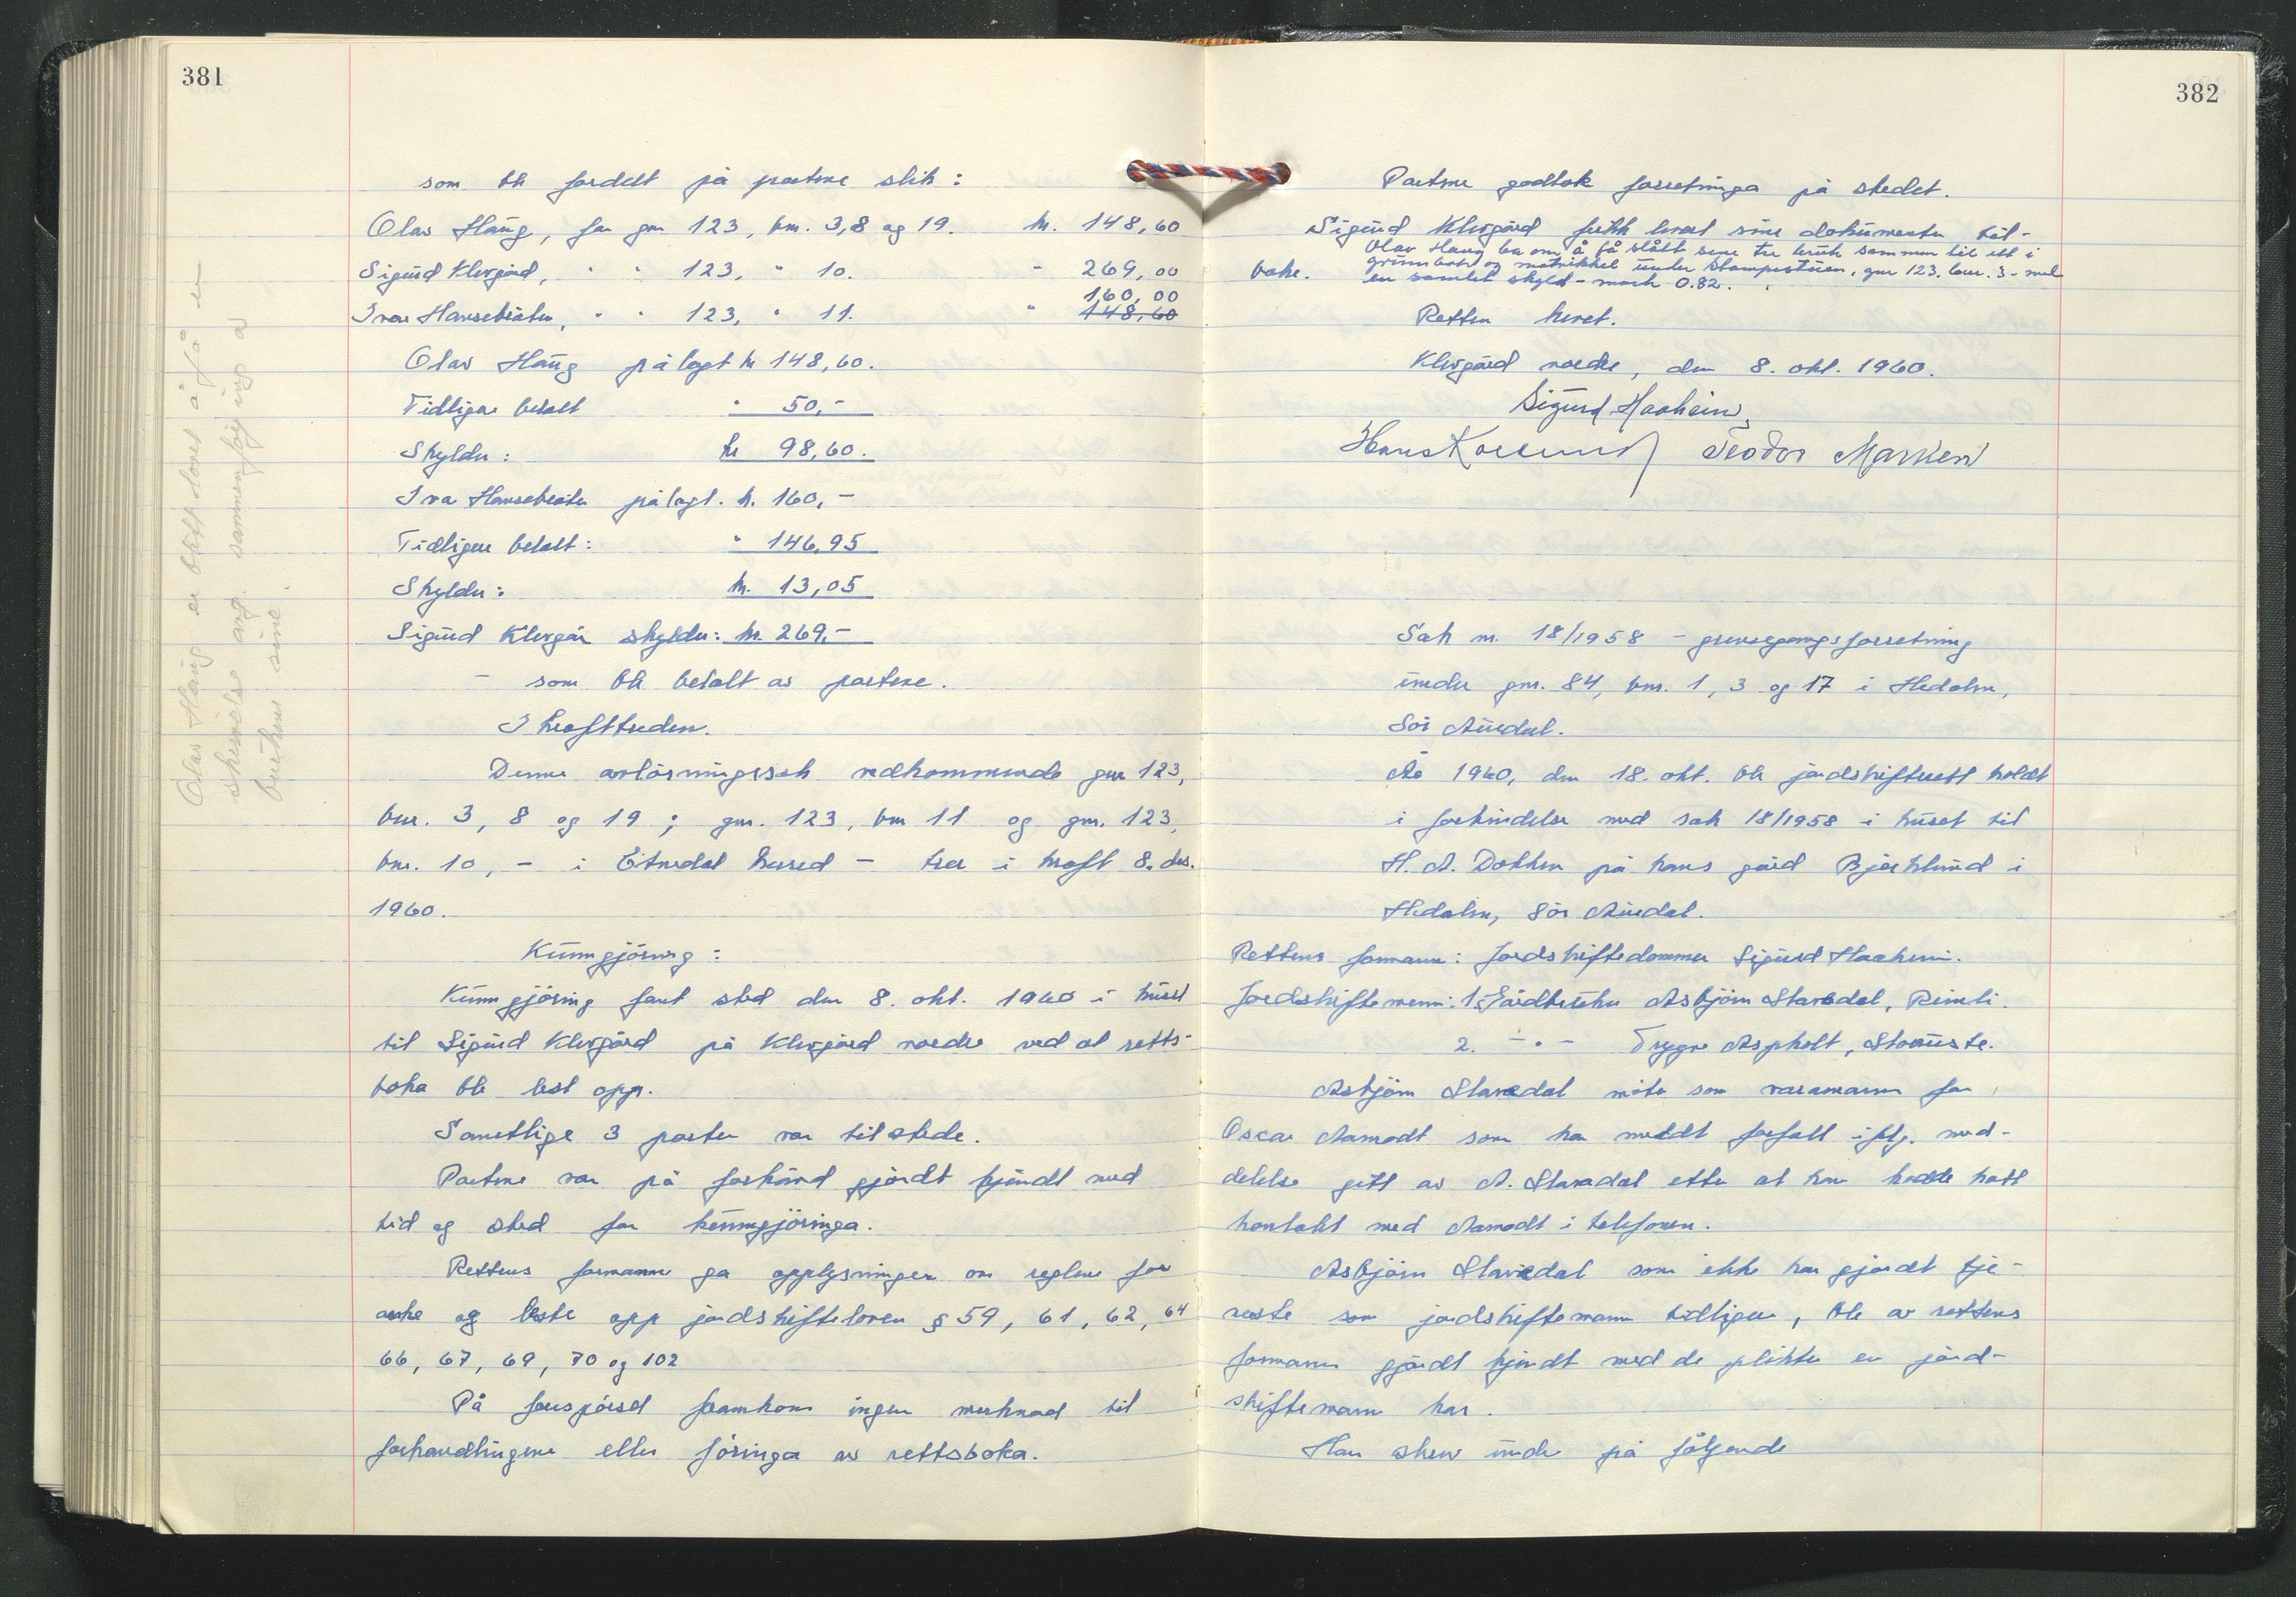 381
som ble fordelt på partene slik:
Olav Haug, for gnr 123, bnr. 3,8 og 19. kr. 148,60
Sigurd Klevgård, " " 123, " 10. " 269,00
160,00
Ivar Hansebråten, " " 123, " 11. " 148,60
Olav Haug pålagt kr 148,60.
Tidligere betalt " 50,-
Skylder: kr 98,60.
Ivar Hansebråten pålagt. kr. 160,-
Tidligere betalt: " 146,95
Skylder: kr. 13,05
Sigurd Klevgår skylder: kr. 269,-
- som ble betalt av partene.
I krafttreden.
Denne avløsningssak vedkommende gnr 123,
bnr. 3, 8 og 19; gnr. 123, bnr 11 og gnr. 123,
bnr. 10, - i Etnedal herred - trer i kraft 8. des.
1960.
Kunngjøring:
Kunngjøring fant sted den 8. okt. 1960 i huset
til Sigurd Klevgård på Klevgård nordre ved at retts-
boka ble lest opp.
Samtlige 3 parter var tilstede.
Partene var på forhånd gjordt kjendt med
tid og sted for kunngjøringa.
Rettens formann ga opplysninger om reglene for
anke og leste opp jordskifteloven § 59, 61, 62, 64
66, 67, 69, 70 og 102
På forespørsel framkom ingen merknad til
forhandlingene eller føringa av rettsboka.
Olav Haug er blitt lovet å få en
skrivelse ang. sammenføying a
brukene sine.
382
Partene godtok forretninga på stedet.
Sigurd Klevgård fikk levert sine dokumenter til-
bake.
Olav Haug ba om å få slått sine tre bruk sammen til ett i
grunnbok og matrikkel under Stampestuen, gnr 123, bnr. 3 - med
en samlet skyld - mark 0.82.
Retten hevet.
Klevgård nordre, den 8. okt. 1960.
Sigurd Haaheim
Hans Teodor Marken
Sak nr. 18/1958 - grensegangsforretning
under gnr. 84, bnr. 1, 3 og 17 i Hedalen,
Sør Aurdal.
År 1960, den 18. okt. ble jordskifterett holdt
i forbindelse med sak 18/1958 i huset til
H. A. Dokken på hans gård Bjørklund i
Hedalen, Sør Aurdal.
Rettens formann: Jordskiftedommer Sigurd Haaheim.
Jordskiftemenn: 1. Gårdbruker Asbjørn Stavedal, Reinli.
2. - " - Trygve Aspholt, Stavuste.
Asbjørn Stavedal møter som varamann for
Oscar Aamodt som har meldt forfall iflg. med-
delelse gitt av A. Stavadal etter at han hadde hatt
kontakt med Aamodt i telefonen.
Asbjørn Stavedal som ikke har gjordt tje-
neste som jordskiftemann tidligere, ble av rettens
formann gjordt kjendt med de plikter en jord-
skiftemann har.
Han skrev under på følgende